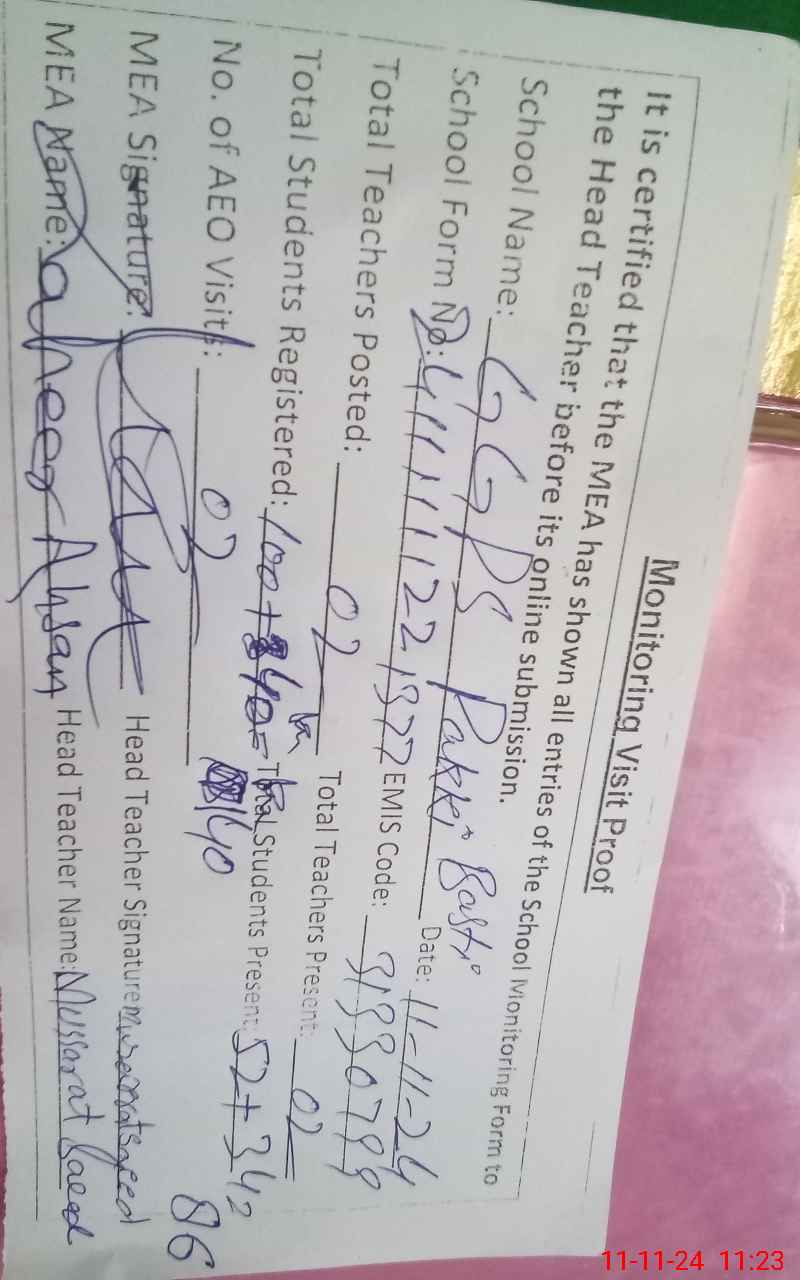 Monitoring Visit Proof
It is certified that the MEA has shown all entries of the School Monitoring Form to
the Head Teacher before its online submission.
School Name: GGPS Pakki Basti Date: 11-11-24
School Form No: EMIS Code:
Total Teachers Posted: 02 Total Teachers Present: 02
Total Students Registered: 100+40= 140 Total Students Present: 52+34= 86
No. of AEO Visits: 02
MEA Signature: Head Teacher Signature Mussarat Saeed
MEA Name: Zaheer Ahsan Head Teacher Name: Mussarat Saeed
11-11-24 11:23